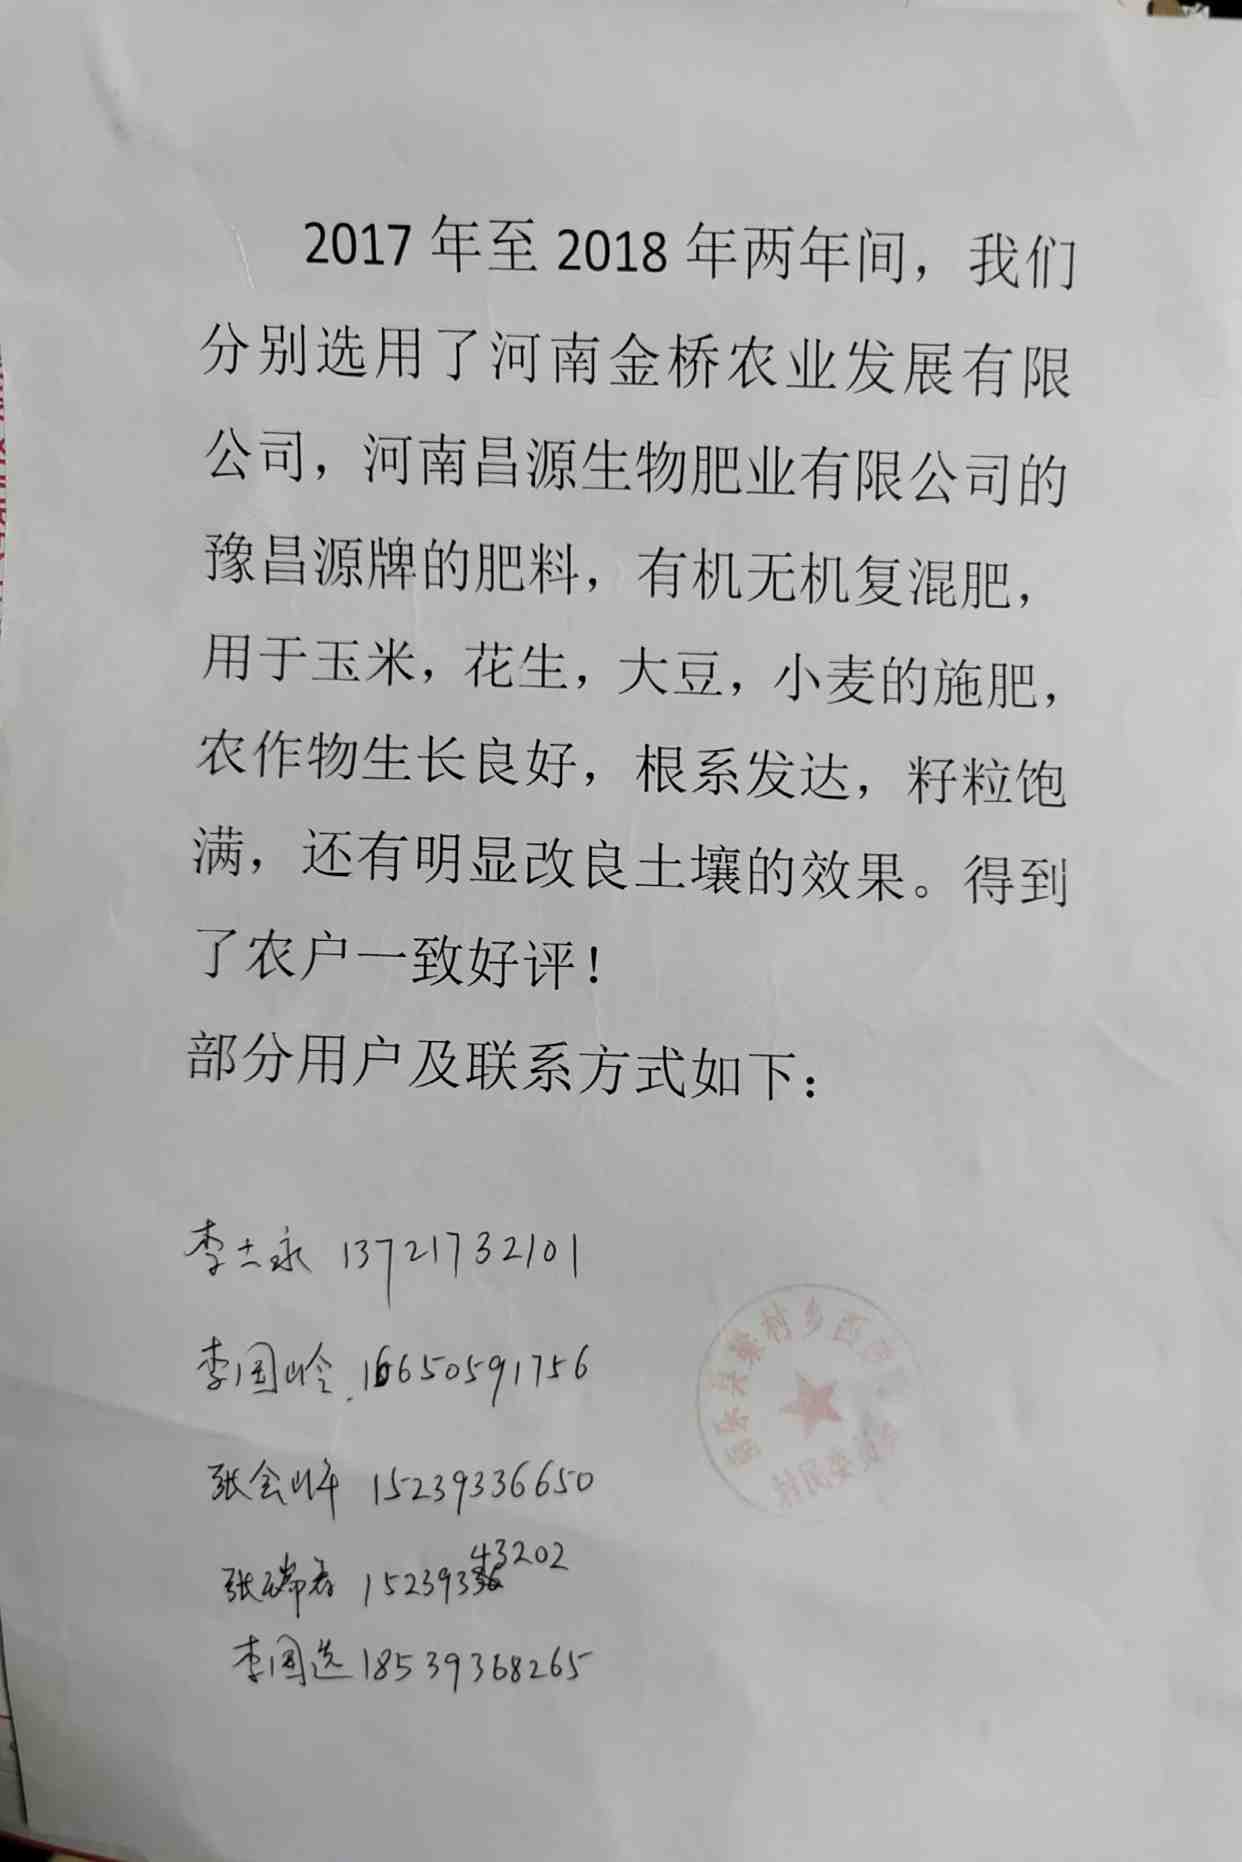 2017年至2018年两年间，我们
分别选用了河南金桥农业发展有限
公司，河南昌源生物肥业有限公司的
豫昌源牌的肥料，有机无机复混肥，
用于玉米，花生，大豆，小麦的施肥，
农作物生长良好，根系发达，籽粒饱
满，还有明显改良土壤的效果。得到
了农户一致好评！
部分用户及联系方式如下：
李士永 13721732101
李国岭.16650591756
张会峰 15239336650
张瑞春 15239343202
李国选 18539368265
梁村乡西
村民委员会